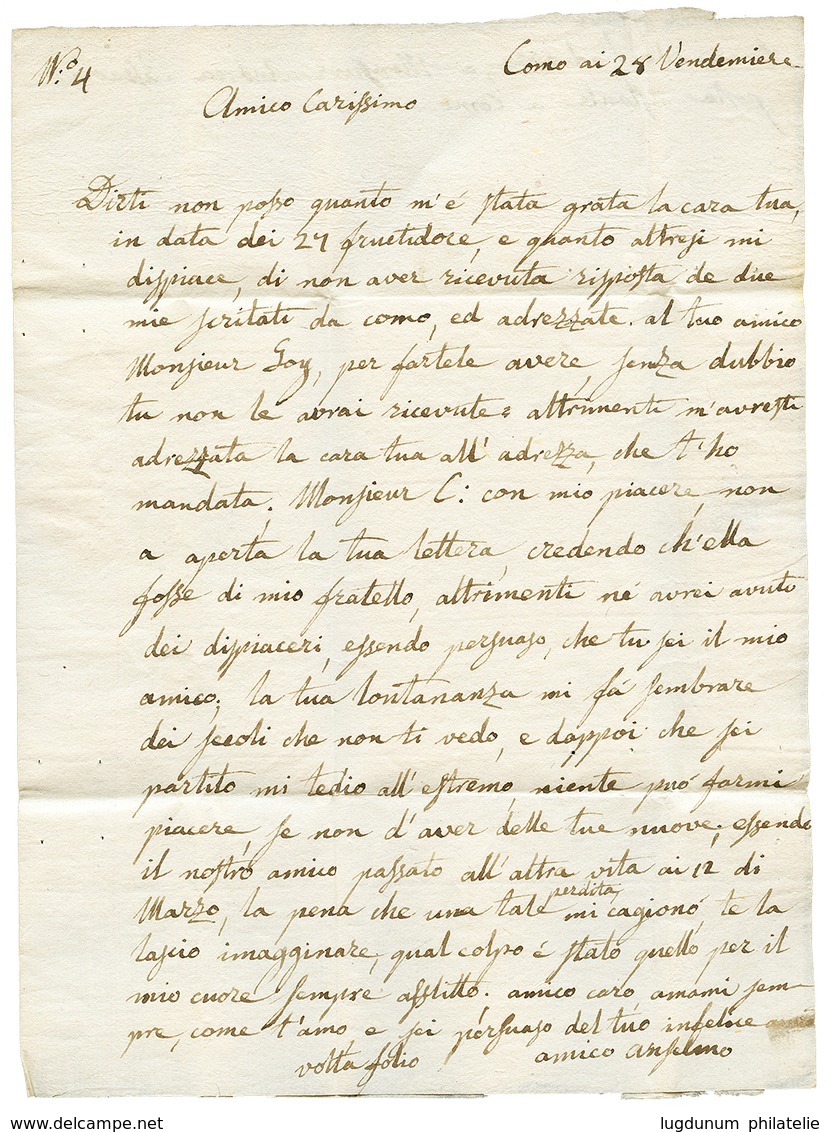 N:o 4
Como ai 28 Vendemiere
Amico Carissimo
Dirti non posso quanto m'é stata grata la cara tua,
in data dei 27 fructidore, e quanto altresi mi
dispiace, di non aver ricevuta risposta de due
mie scritati da como, ed adrezzate. al tuo amico
Monsieur Goy, per fartele avere, senza dubbio
tu non le avrai ricevute: altrimenti m'avresti
adrezzata la cara tua all' adrezza, che t'ho
mandata. Monsieur C: con mio piacere, non
a aperta la tua lettera, credendo ch'ella
fosse di mio fratello, altrimenti né avrei avuto
dei dispiaceri, essendo persuaso, che tu sei il mio
amico; la tua lontananza mi fá sembrare
dei secoli che non ti vedo, e dappoi che sei
partito mi tedio all' estremo, niente puó farmi
piacere, se non d'aver delle tue nuove; essendo
il nostro amico passato all' altra vita ai 12 di
Marzo, la pena che una tale perdita, mi cagionó, te la
lascio imagginare, qual colpo é stato quello per il
mio cuore sempre afflitto. amico caro, amami sem-
pre, come t'amo, e sei persuaso del tuo infelice
amico anselmo
volta folio
www.delcampe.net
lugdunum philatelie